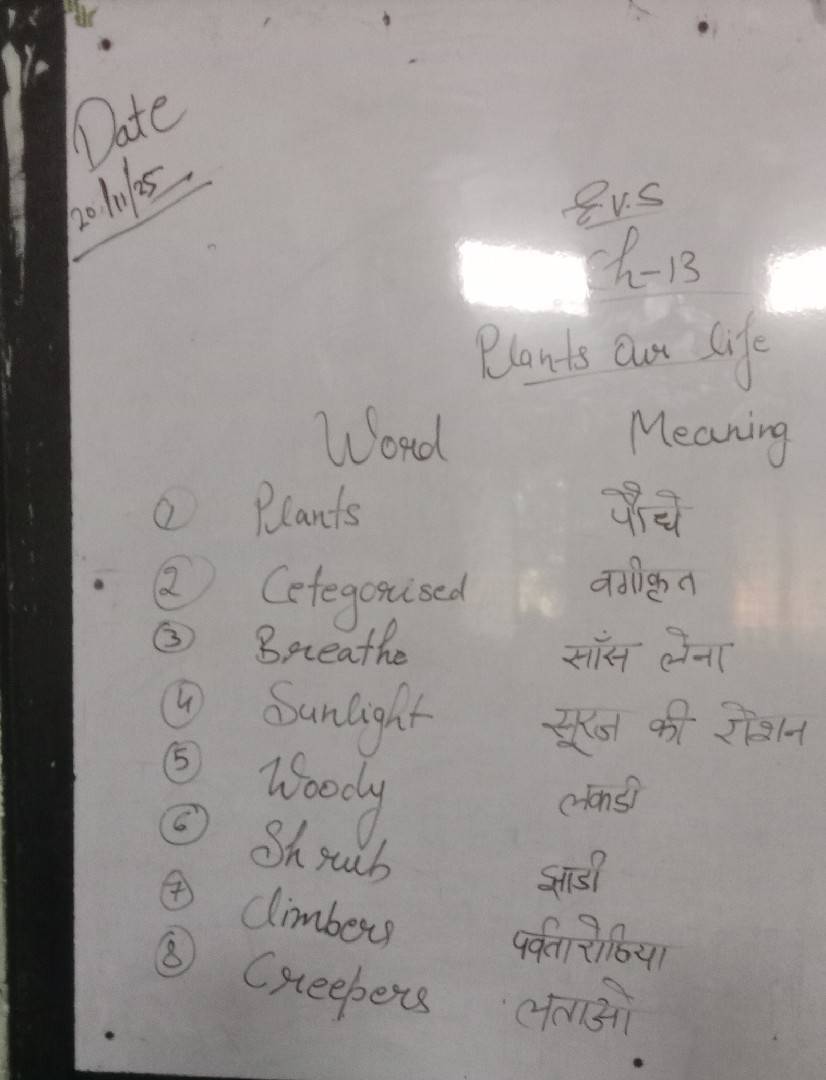 Date
20/11/25
E.V.S
Ch-13
Plants our life
Word Meaning
1 Plants पौधे
2 Cetegorised वर्गीकृत
3 Breathe साँस लेना
4 Sunlight सूरज की रोशन
5 Woody लकडी
6 Shrub झाडी
7 Climbers पर्वतारोहिया
8 Creepers लताओ